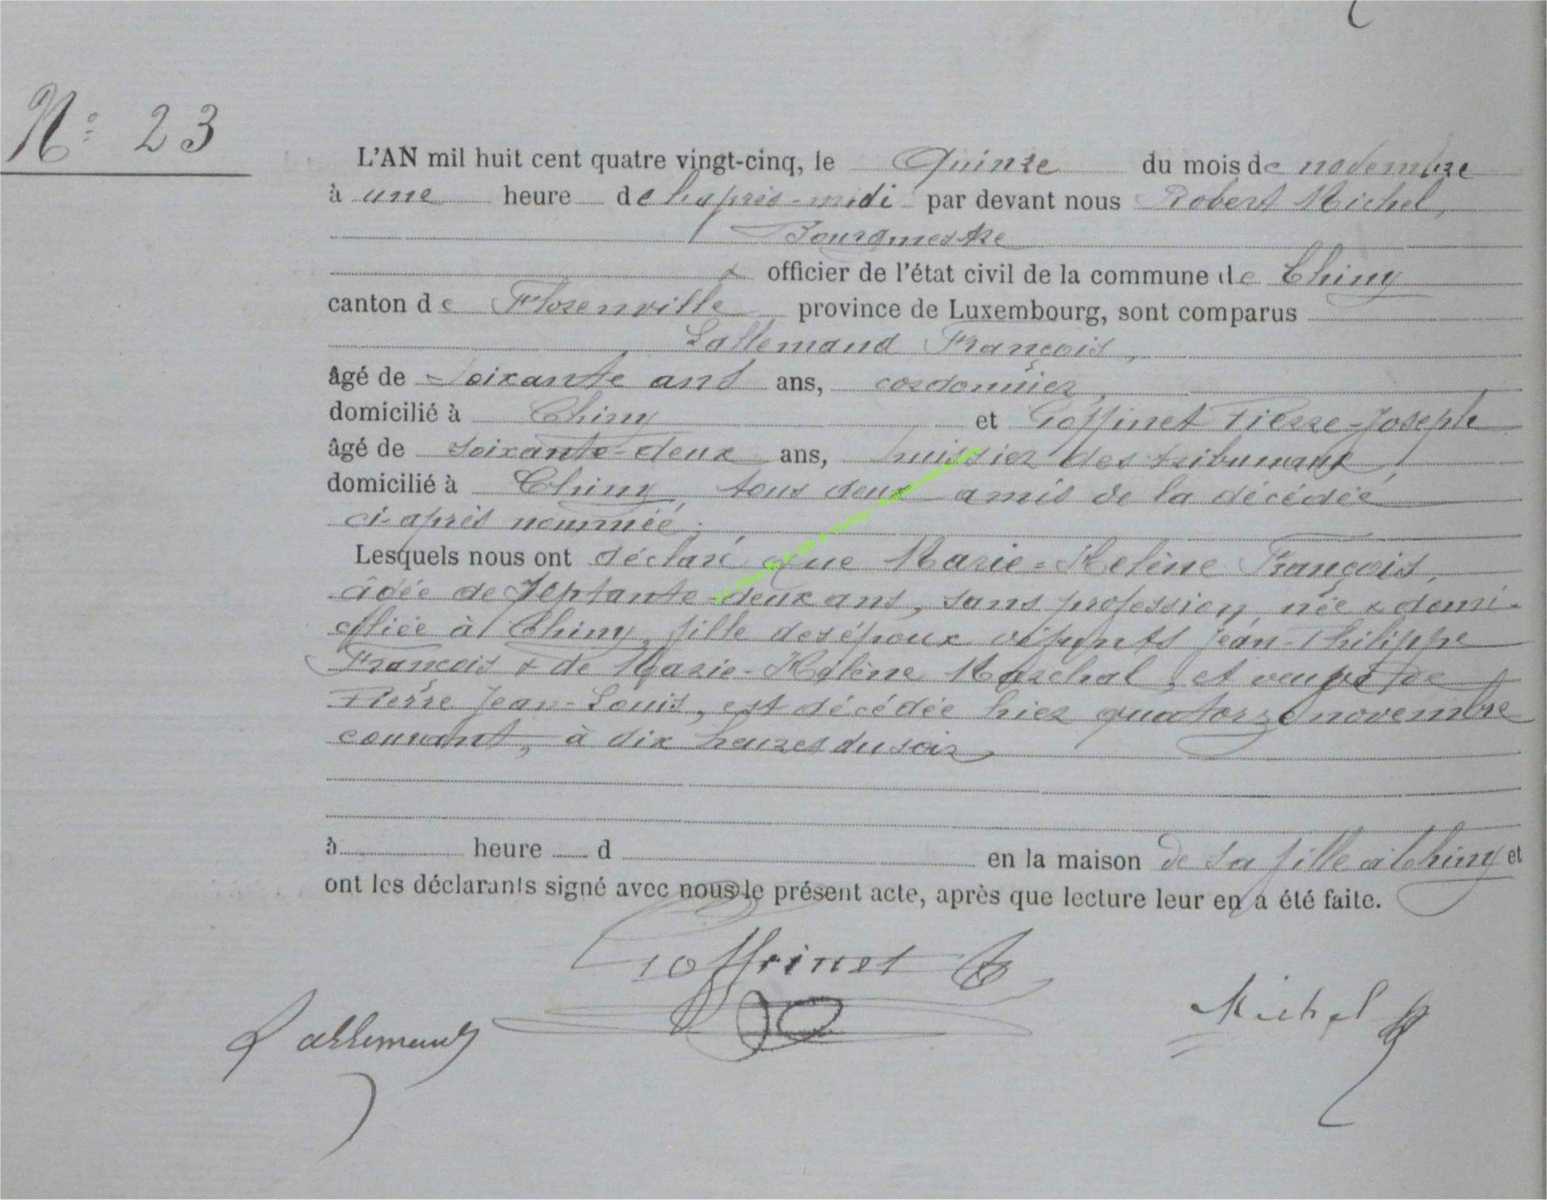 N° 23
L'AN mil huit cent quatre vingt-cinq, le Quinze du mois de novembre
à une heure de l'après-midi par devant nous Robert Michel,
Bourgmestre
& officier de l'état civil de la commune de Chiny
canton de Florenville province de Luxembourg, sont comparus
Lallemand François,
âgé de Soixante ans ans, cordonnier,
domicilié à Chiny et Goffinet Pierre-Joseph
âgé de soixante-deux ans, huissier des tribunaux,
domicilié à Chiny, tous deux amis de la décédée
ci-après nommée.
Lesquels nous ont déclaré que Marie-Hélène François,
âgée de septante-deux ans, sans profession, née & domi-
ciliée à Chiny, fille des époux défunts Jean-Philippe
François & de Marie-Hélène Marchal, et veuve de
Pierre Jean-Louis, est décédée hier quatorze novembre
courant, à dix heures du soir
à heure d en la maison de sa fille à Chiny et
ont les déclarants signé avec nous le présent acte, après que lecture leur en a été faite.
Goffinet
Lallemand Michel R